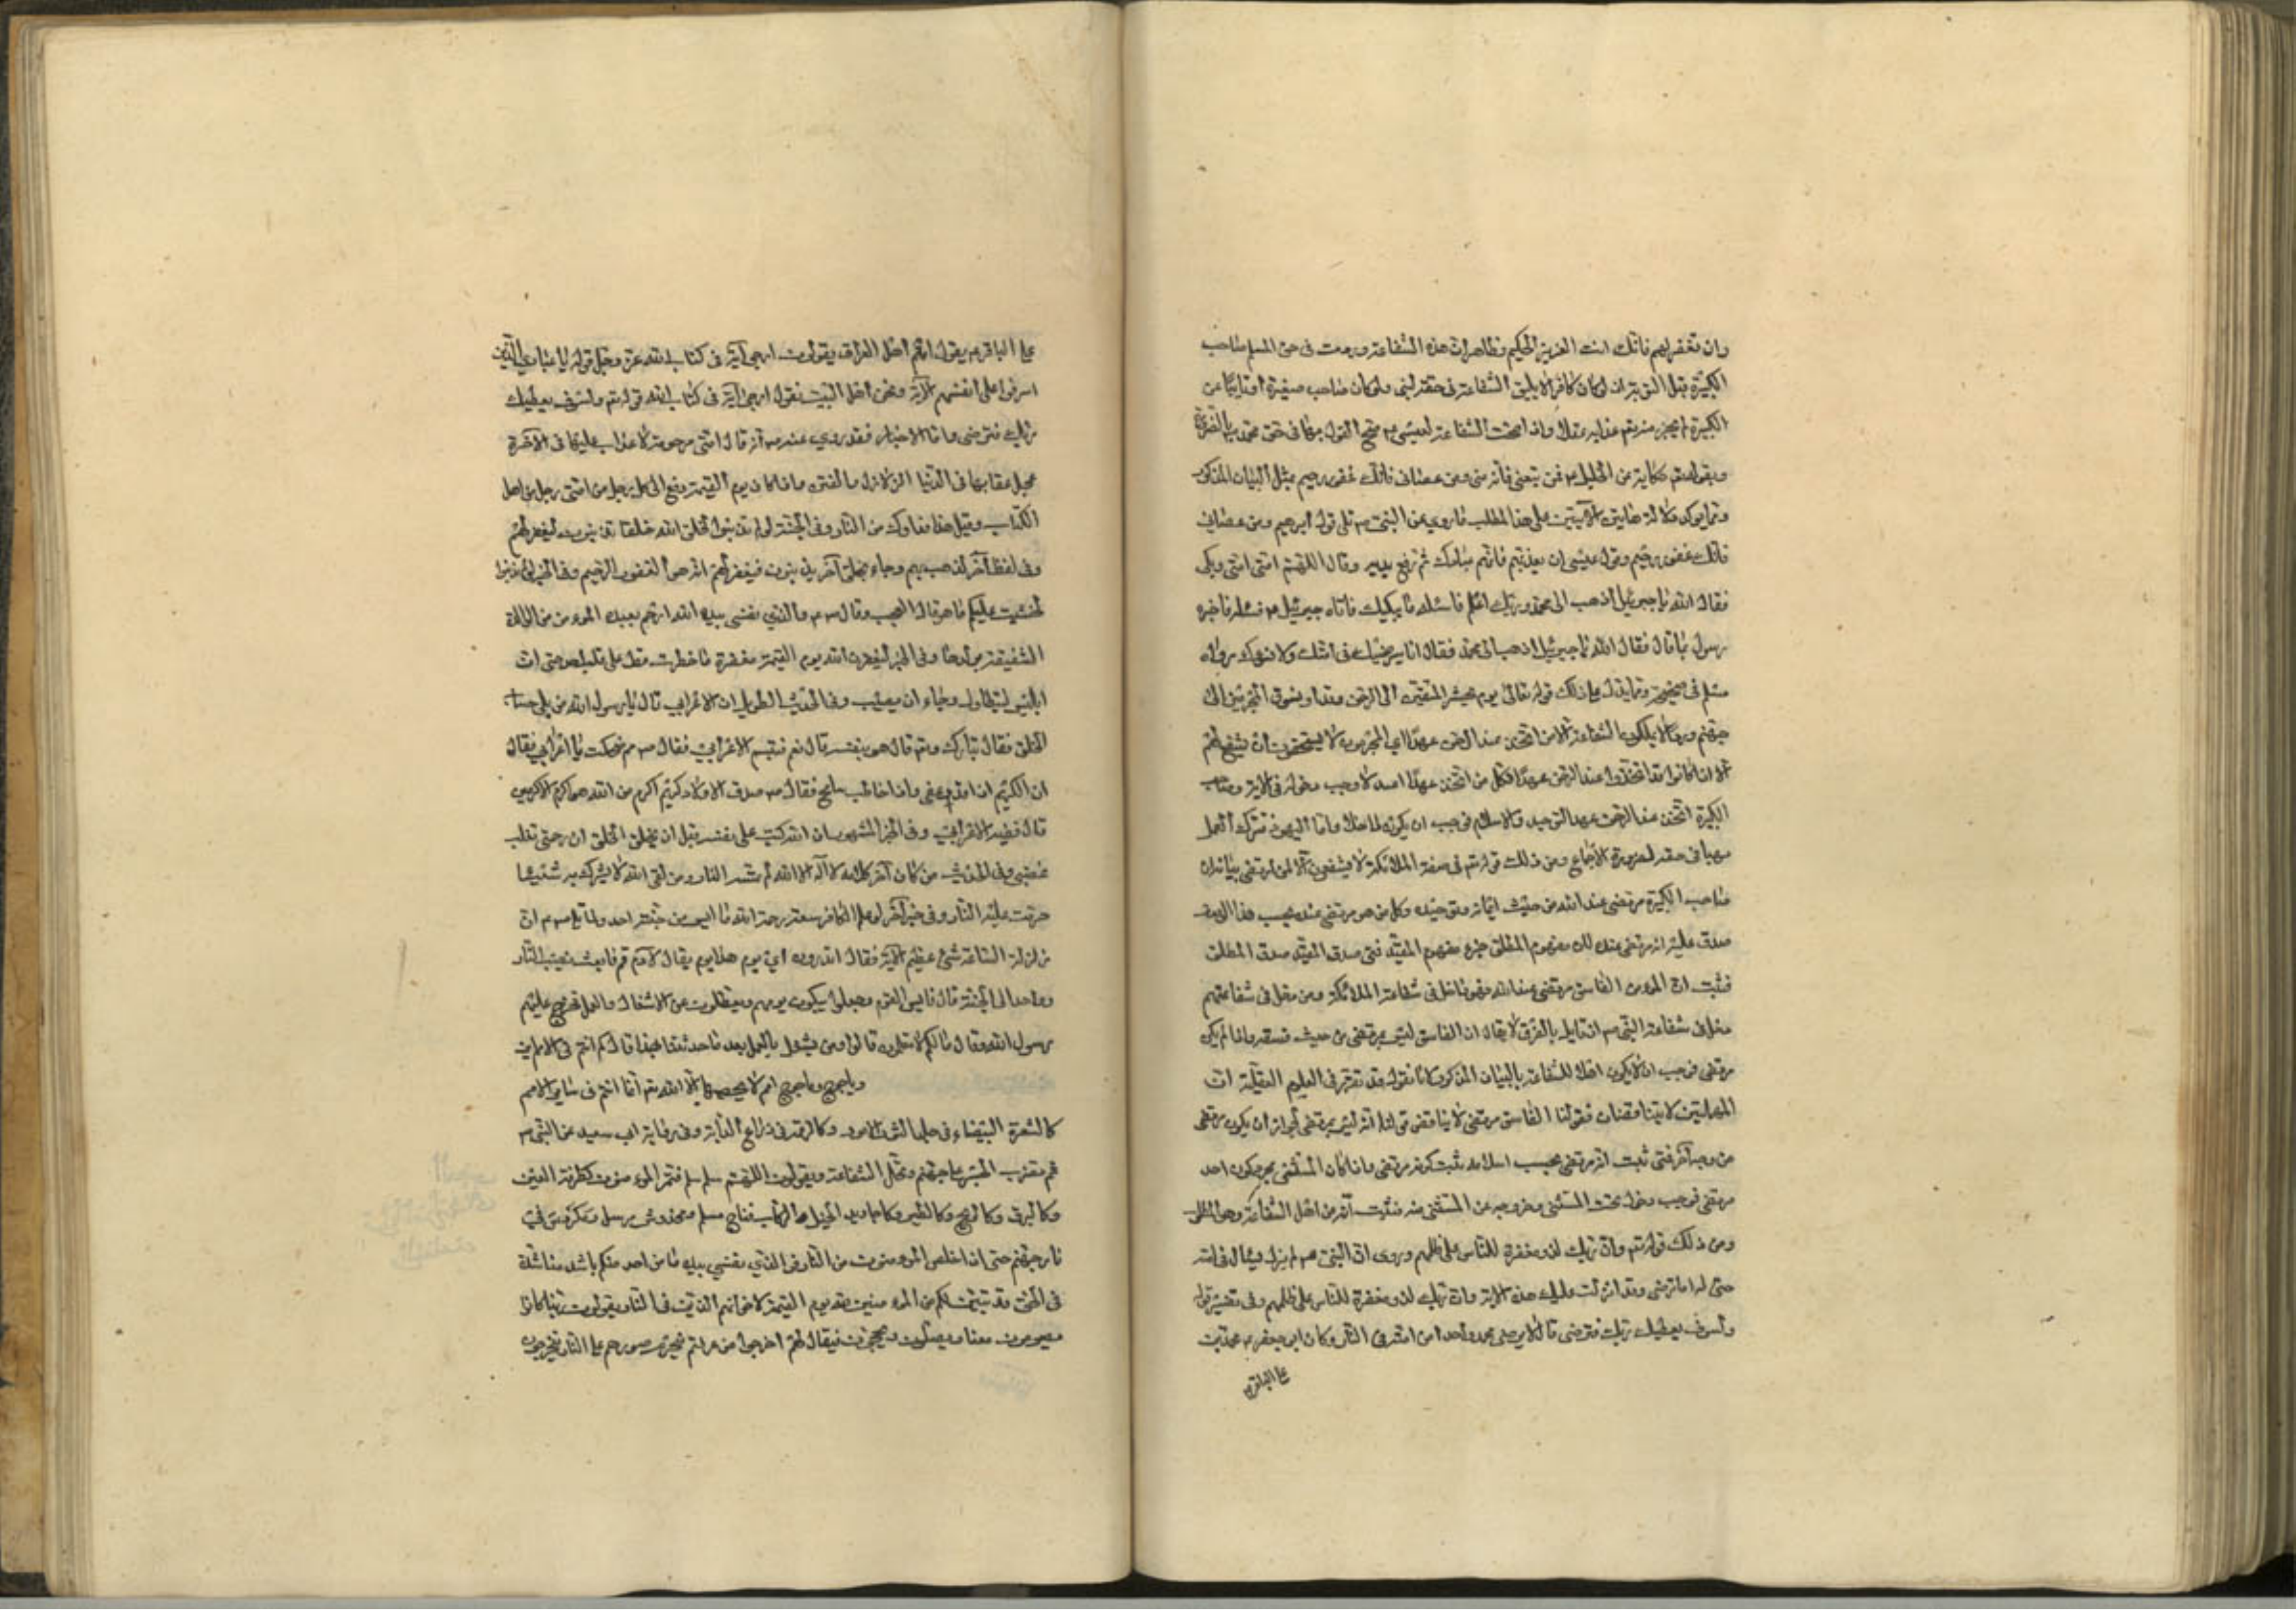 وان تغفر لهم فانك انت العزيز الحكيم وظاهر ان هذه الشفاعة وردت فى حق المسلم صاحب
الكبيرة قبل التوبة اذ لو كان كافرا لا يليق الشفاعة فى حقه لنبى ولو كان صاحب صغيرة او تايبا عن
الكبيرة لم يجز منه تع عذابه عقلا واذا صحت الشفاعة لعيسى ع م صح القول بها فى حق محمد
وبقوله تع حكاية عن الخليل ع م فمن تبعنى فانه منى ومن عصانى فانك غفور رحيم بمثل البيان المذكور
ومما يوكد دلالة هاتين الآيتين على هذا المطلب ما روى عن النبى ص م تلى قول ابرهيم ومن عصانى
فانك غفور رحيم وقول عيسى ان تعذبهم فانهم عبادك ثم رفع يديه وقال اللهم امتى امتى وبكى
فقال الله يا جبرئيل اذهب الى محمد وربك اعلم فاسئله ما يبكيك فاتاه جبرئيل ع م فسئله فاخبره
رسول بما قال فقال الله يا جبرئيل اذهب الى محمد فقال انا سنرضيك فى امتك ولا نسوك رواه
مسلم فى صحيحه ومما يدل على ذلك قوله تعالى يوم نحشر المتقين الى الرحمن وفدا ونسوق المجرمين الى
جهنم وردا لا يملكون الشفاعة الا من اتخذ عند الرحمن عهدا اى المجرمون لا يستحقون ان تشفع لهم
الا اذا كانوا قد اتخذوا عند الرحمن عهدا فكل من اتخذ عهدا عند الله وجب دخوله فى الاية وصاحب
الكبيرة اتخذ عند الرحمن عهدا التوحيد والاسلام فوجب ان يكون داخلا واما اليهود فترك العمل
بها فى حقه لضرورة الاجماع ومن ذلك قوله تع فى صفة الملائكة لا يشفعون الا لمن ارتضى بيانه ان
صاحب الكبيرة مرتضى عند الله من حيث ايمانه وتوحيده وكل من هو مرتضى عنده بحسب هذا الوصف
صدق عليه انه مرتضى عنده لان مفهوم المطلق جزء مفهوم المقيد فمتى صدق المقيد صدق المطلق
فثبت ان المومن الفاسق مرتضى عند الله فهو داخل فى شفاعة الملائكة ومن دخل فى شفاعتهم
دخل فى شفاعة النبى ص م اذ لا قايل بالفرق لا يقال ان الفاسق ليس بمرتضى من حيث فسقه واذا لم يكن
مرتضى فوجب ان لا يكون اهلا للشفاعة بالبيان المذكور لانا نقول قد تقرر فى العلوم العقلية ان
المهملتين لا يتناقضان فقولنا الفاسق مرتضى لا يناقض قولنا انه ليس بمرتضى لجواز ان يكون مرتضى
من وجه آخر فمتى ثبت انه مرتضى بحسب اسلامه ثبت كونه مرتضى واذا كان المستثنى مجرد كونه احد
مرتضى فوجب دخوله تحت المستثنى وخروجه عن المستثنى منه فثبت انه من اهل الشفاعة وهو المطلوب
ومن ذلك قوله تع وان ربك لذو مغفرة للناس على ظلمهم وروى ان النبى ص م لم يزل يسال فى امته
حتى قيل له اما ترضى وقد انزلت عليك هذه الاية وان ربك لذو مغفرة للناس على ظلمهم وفى تفسير قوله
ولسوف يعطيك ربك فترضى قال لا يرضى محمد واحد من امته فى النار وكان ابو جعفر محمد بن
على الباقر
على الباقر ع م يقول انكم اهل العراق يقولون ارجى آية فى كتاب الله عز وجل قوله يا عبادى الذين
اسرفوا على انفسهم الآية ونحن اهل البيت نقول ارجى آية فى كتاب الله قوله تع ولسوف يعطيك
ربك فترضى واما الاخبار فقد روى عنه ص م انه قال امتى مرحومة لا عذاب عليها فى الآخرة
عجل عقابها فى الدنيا الزلازل والفتن واذا كان يوم القيمة دفع الى كل رجل من امتى رجل من اهل
الكتاب وقيل هذا فداوك من النار وفى الجنة لو لم تذنبوا لخلق الله خلقا يذنبون ليغفر لهم
وفى لفظ آخر لذهب بهم وجاء بخلق آخر يذنبون فيغفر لهم انه هو الغفور الرحيم وفى الخبر لو لم تذنبوا
لخشيت عليكم ما هو قال العجب وقال ص م والذى نفسى بيده الله ارحم بعبده المومن من الوالدة
الشفيقة بولدها وفى الخبر ليغفرن الله يوم القيمة مغفرة ما خطرت قط على قلب احد حتى ان
ابليس ليتطاول رجاء ان يصيبه وفى الحديث الطويل ان الاعرابى قال يا رسول الله من يلى حساب
الخلق فقال تبارك وتع قال هو بنفسه قال نعم فتبسم الاعرابى فقال ص م مم ضحكت يا اعرابى فقال
ان الكريم اذا قدر عفى واذا حاسب سامح فقال ص م صدق الا ولا كريم اكرم من الله هو اكرم الاكرمين
قال فقيه الاعرابى وفى الخبر المشهور ان الله كتب على نفسه قبل ان يخلق الخلق ان رحمتى تغلب
غضبى وفى الحديث من كان آخر كلامه لا اله الا الله لم تمسه النار ومن لقى الله لا يشرك به شيئا
حرمت عليه النار وفى خبر آخر لو علم الكافر سعة رحمة الله ما ايس من جنته احد ولما تلى ص م ان
زلزلة الساعة شئ عظيم الآية فقال اتدرون اى يوم هذا يوم يقال لآدم قم فابعث بعث النار
وواحد الى الجنة قال فايس القوم وجعلوا يبكون يومهم وتعطلوا عن الاشغال والعمل فخرج عليهم
رسول الله وقال ما لكم لا تعملون قالوا ومن يشتغل بالعمل بعد ما حدثتنا بهذا قال كم انتم فى الامم اين
وياجوج وماجوج امم لا يحصيها الا الله تع انما انتم فى سائر الامم
كالشعرة البيضاء فى جلد الثور الاسود وكالرقمة فى ذراع الدابة وفى رواية ابى سعيد عن النبى ص م
ثم يضرب الجسر على جهنم وتحل الشفاعة ويقولون اللهم سلم سلم فتمر المومنون كطرفة العين
وكالبرق وكالريح وكالطير وكاجاويد الخيل والركاب فناج مسلم ومخدوش مرسل ومكردس فى
نار جهنم حتى اذا خلص المومنون من النار فو الذى نفسى بيده ما من احد منكم باشد مناشدة
فى الحق قد تبين لكم من المومنين لله يوم القيمة لاخوانهم الذين فى النار يقولون ربنا كانوا
يصومون معنا ويصلون ويحجون فيقال لهم اخرجوا من عرفتم فتحرم صورهم على النار فيخرجون